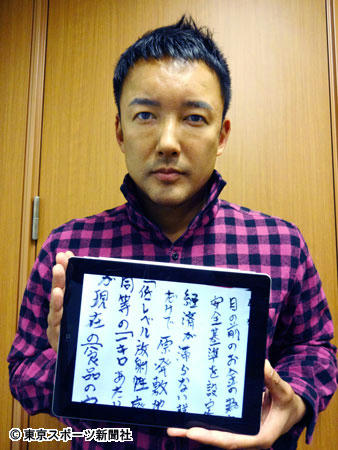 目の前のお金の
安全基準を設定
経済が滞らない様
だけで原発敷地
「低レベル放射性
同等の一キロあた
が現在の食品の
©東京スポーツ新聞社